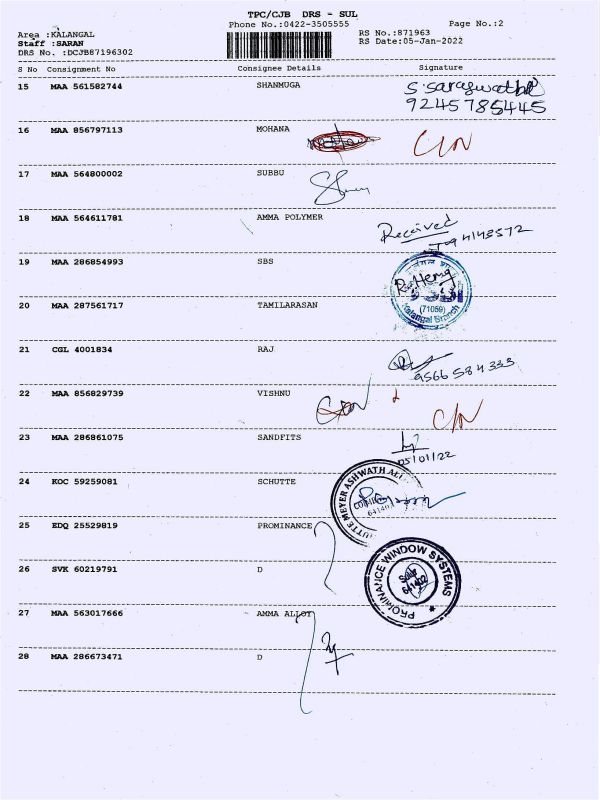 TPC/CJB DRS - SUL
Phone No.:0422-3505555
Page No.:2
Area :KALANGAL
RS No.:871963
Staff :SARAN
RS Date:05-Jan-2022
DRS No. :DCJB87196302
S No Consignment No Consignee Details Signature
15 MAA 561582744 SHANMUGA
9245785445
16 MAA 856797113 MOHANA
17 MAA 564800002 SUBBU
18 MAA 564611781 AMMA POLYMER
Received
19 MAA 286854993 SBS
R. Hema
(71059)
Kalangal Branch
20 MAA 287561717 TAMILARASAN
21 CGL 4001834 RAJ
9566584333
22 MAA 856829739 VISHNU
23 MAA 286861075 SANDFITS
05/01/22
24 KOC 59259081 SCHUTTE
25 EDQ 25529819 PROMINANCE
PROMINANCE WINDOW SYSTEMS
Sulur
641402
26 SVK 60219791 D
27 MAA 563017666 AMMA ALLOY
28 MAA 286673471 D